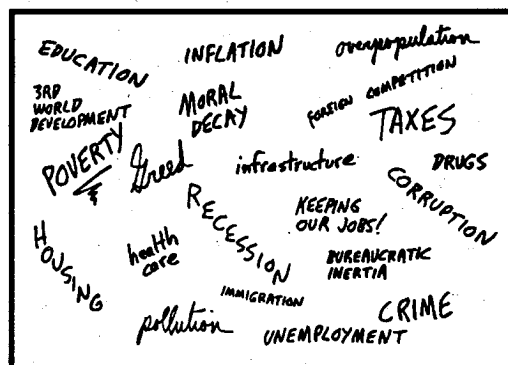 EDUCATION
INFLATION
overpopulation
3RD
WORLD
DEVELOPMENT
MORAL
DECAY
FOREIGN COMPETITION
TAXES
POVERTY
Greed
infrastructure
DRUGS
RECESSION
CORRUPTION
KEEPING
OUR JOBS!
HOUSING
health
care
BUREAUCRATIC
INERTIA
IMMIGRATION
pollution
CRIME
UNEMPLOYMENT